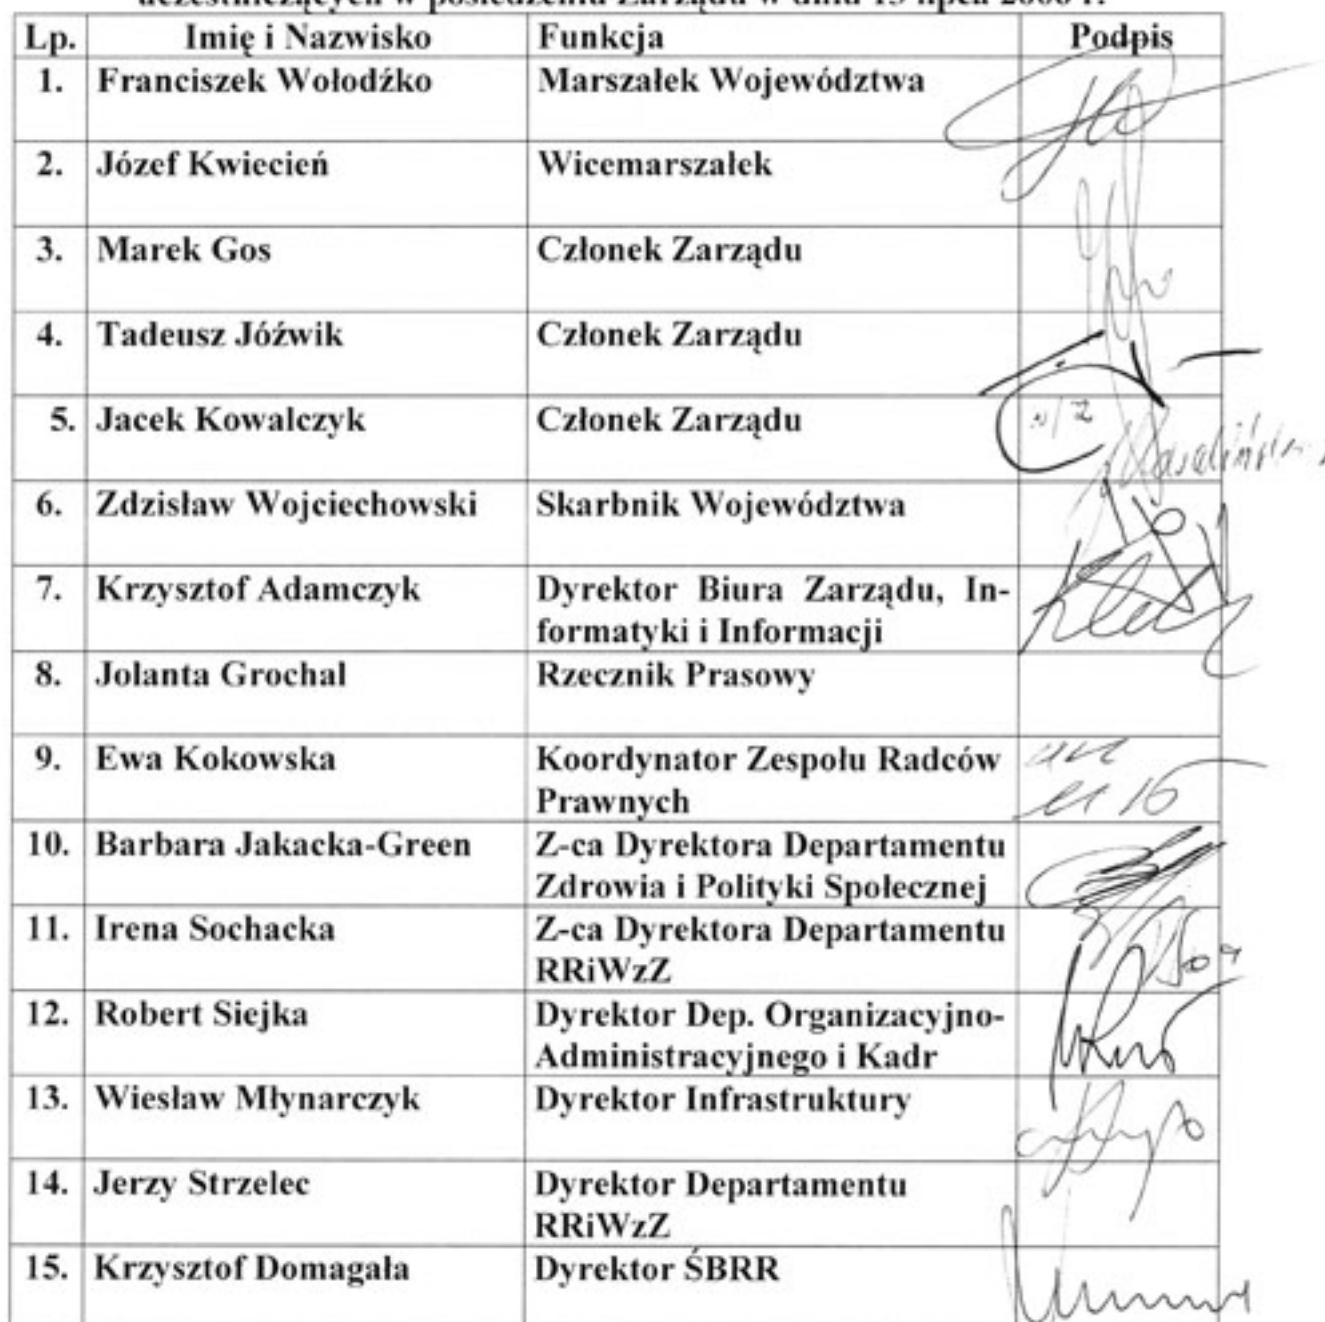 uczestniczących w posiedzeniu Zarządu w dniu lipca
Lp. Imię i Nazwisko Funkcja Podpis
1. Franciszek Wołodźko Marszałek Województwa
2. Józef Kwiecień Wicemarszałek
3. Marek Gos Członek Zarządu
4. Tadeusz Jóźwik Członek Zarządu
5. Jacek Kowalczyk Członek Zarządu
6. Zdzisław Wojciechowski Skarbnik Województwa
7. Krzysztof Adamczyk Dyrektor Biura Zarządu, In-
formatyki i Informacji
8. Jolanta Grochal Rzecznik Prasowy
9. Ewa Kokowska Koordynator Zespołu Radców
Prawnych
10. Barbara Jakacka-Green Z-ca Dyrektora Departamentu
Zdrowia i Polityki Społecznej
11. Irena Sochacka Z-ca Dyrektora Departamentu
RRiWzZ
12. Robert Siejka Dyrektor Dep. Organizacyjno-
Administracyjnego i Kadr
13. Wiesław Młynarczyk Dyrektor Infrastruktury
14. Jerzy Strzelec Dyrektor Departamentu
RRiWzZ
15. Krzysztof Domagała Dyrektor ŚBRR